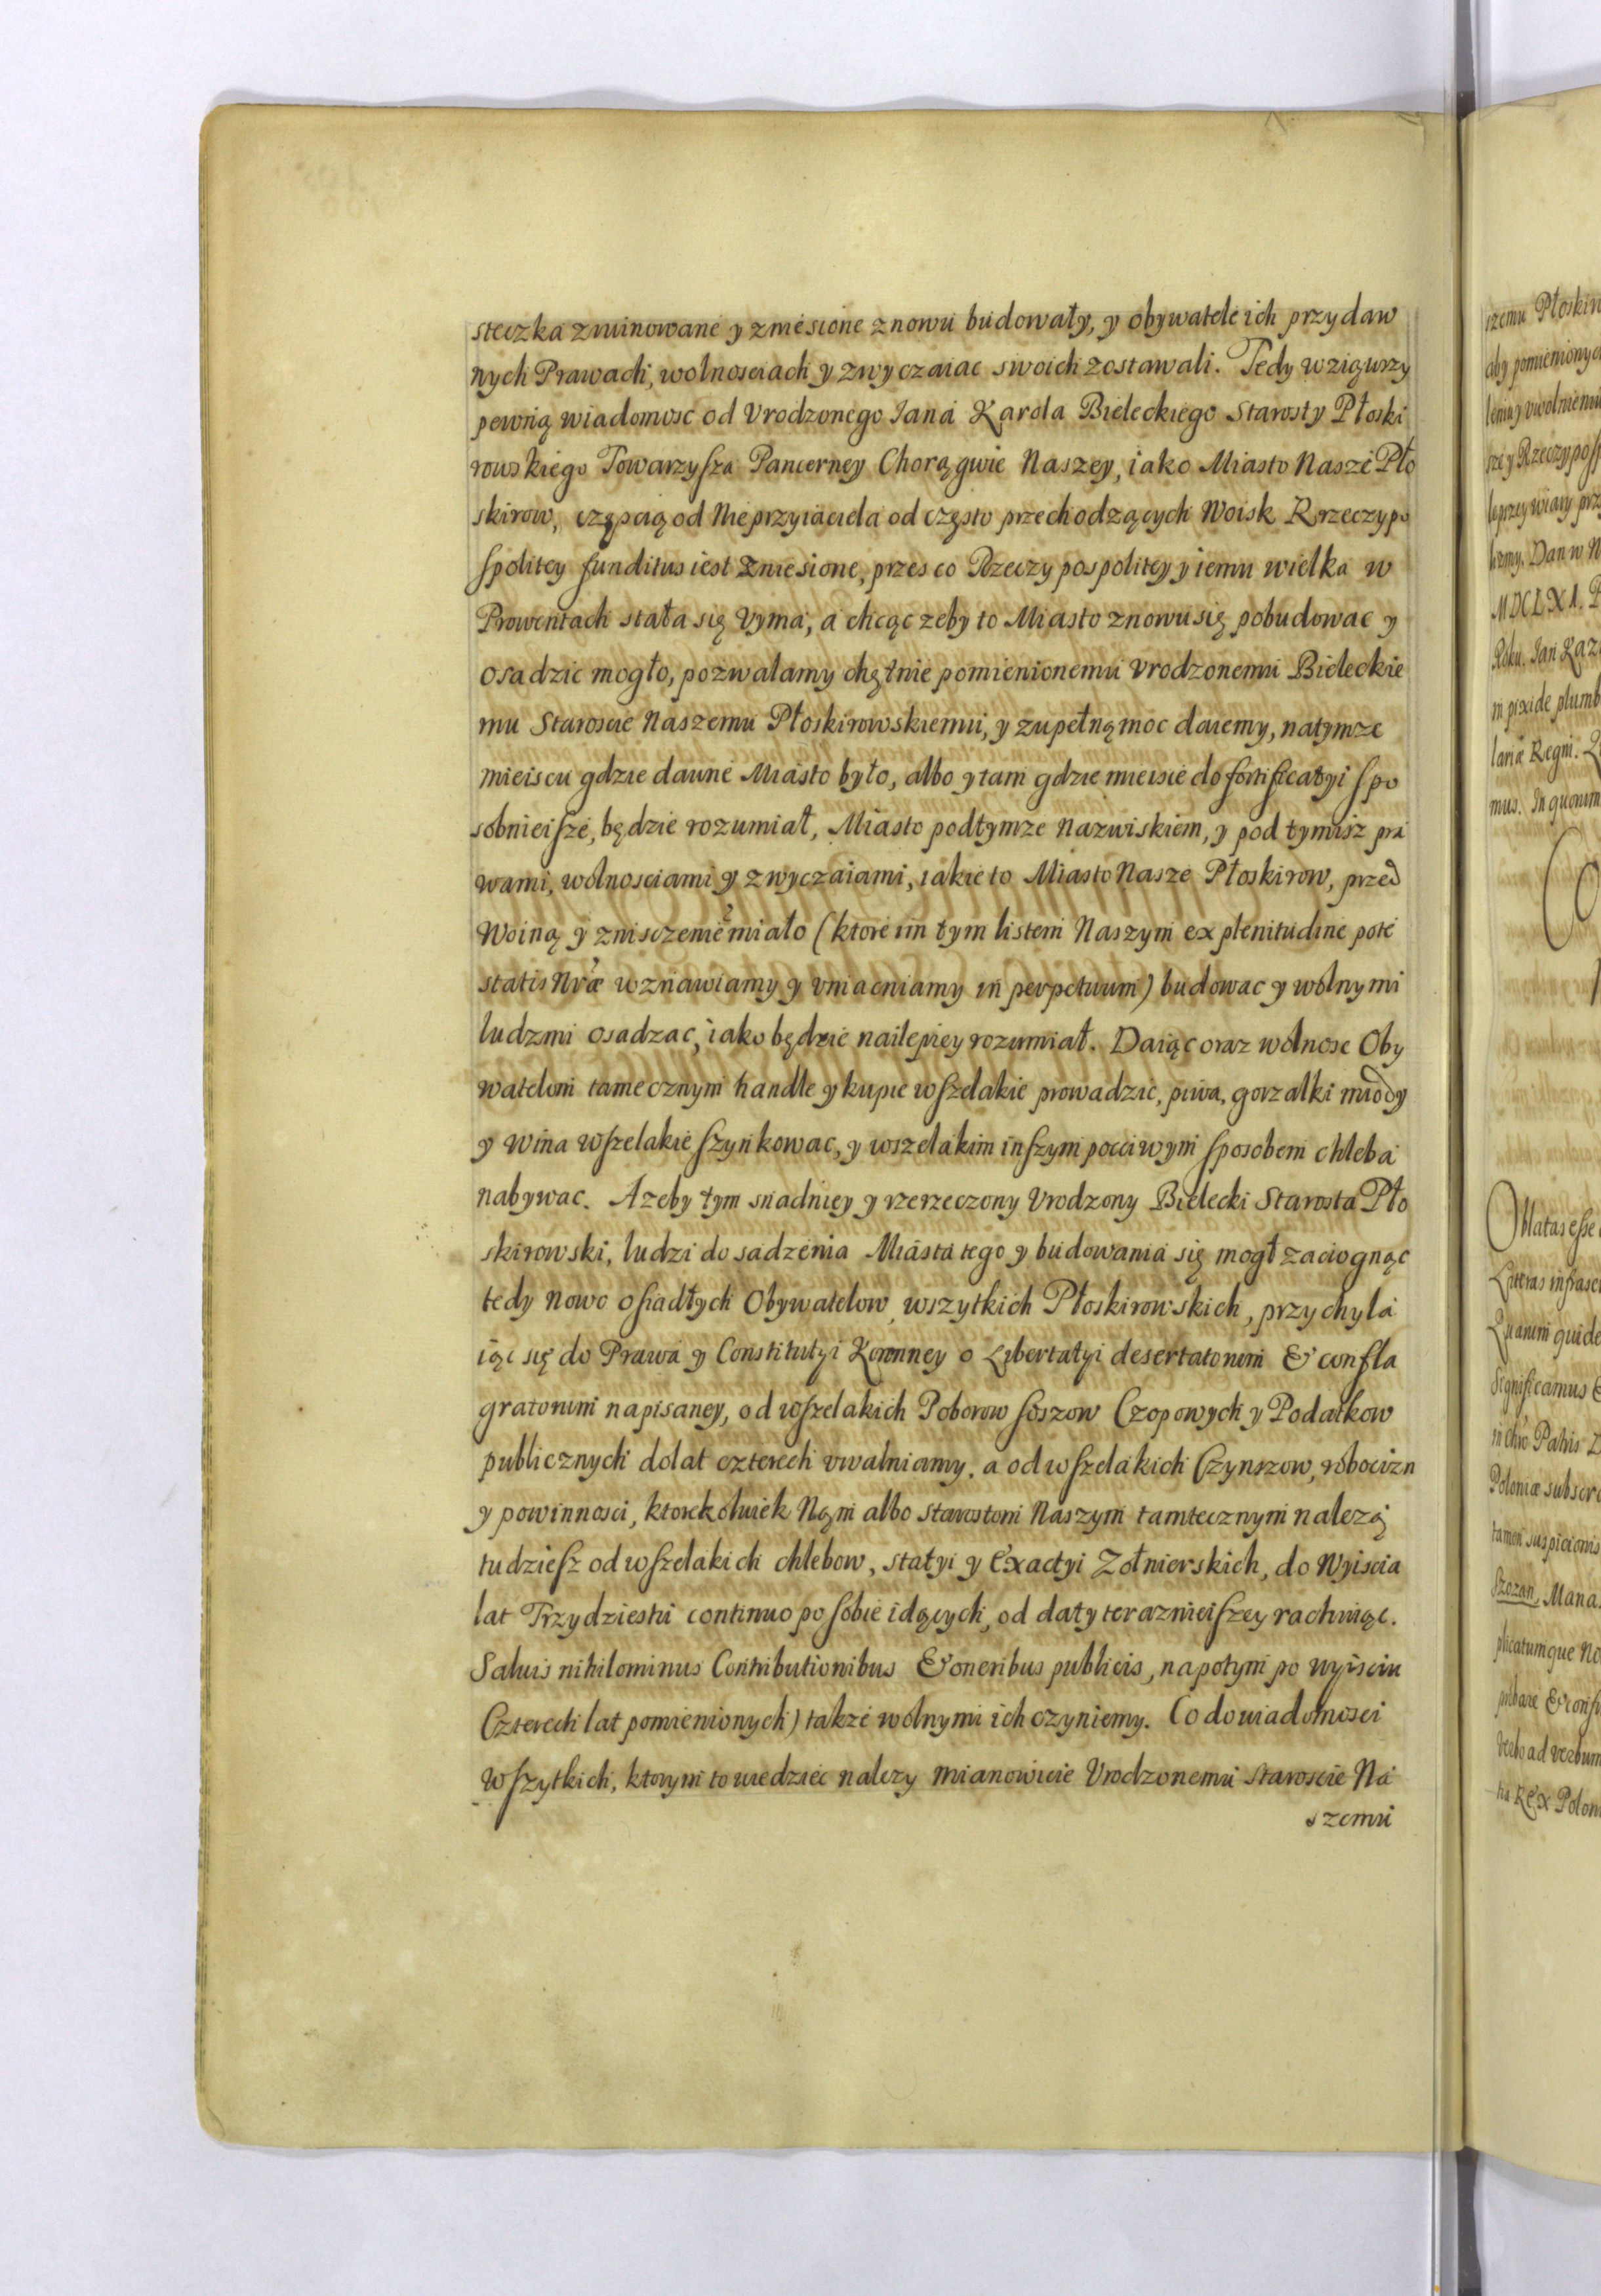 steczka zruinowane y zniesione znowu budowały, y obywatele ich przy daw
nych Prawach, wolnosciach y zwyczaiac swoich zostawali. Tedy wziąwszy
pewną wiadomosc od Vrodzonego Iana Karola Bieleckiego Starosty Płoski
rowskiego Towarzysza Pancerney Chorągwie Naszey, iako Miasto Nasze Pło
skirow, częscią od Nieprzyiaciela od często przechodzących Woisk Rzeczypo
spolitey funditus iest zniesione, przes co Rzeczypospolitey y iemu wielka w
Prowentach stała się vyma, a chcąc zeby to Miasto znowu się pobudowac y
osadzic mogło, pozwalamy chętnie pomienionemu vrodzonemu Bieleckie
mu Staroscie Naszemu Płoskirowskiemu, y zupełną moc daiemy, na tymze
mieiscu gdzie dawne Miasto było, albo y tam gdzie mieisie do fortificatyi spo
sobnieisze, będzie rozumiał, Miasto pod tymze nazwiskiem, y pod tymisz pra
wami, wolnosciami y zwyczaiami, iakie to Miasto Nasze Płoskirow, przed
Woiną y zniszczenie miało (ktore im tym listem Naszym ex plenitudine pote
statis Nræ wznawiamy y vmacniamy in perpetuum) budowac y wolnymi
ludzmi osadzac, iako będzie nailepiey rozumiał. Daiąc oraz wolnosc Oby
watelom tamecznym handle y kupie wszelakie prowadzic, piwa, gorzalki miody
y wina wszelakie szynkowac, y wszelakim inszym pocciwym sposobem chleba
nabywac. A zeby tym snadniey y rzerzeczony Vrodzony Bielecki Starosta Pło
skirowski, ludzi do sadzenia Miasta tego y budowania się mogł zaciognąc
tedy nowo osiadłych Obywatelow, wszytkich Płoskirowskich, przychyla
iąc się do Prawa y Constitutyi Koronney o Libertatyi desertatorum & confla
gratorum napisaney, od wszelakich Poborow soszow Czopowych y Podatkow
publicznych do lat czterech vwalniamy, a od wszelakich Czynszow, robocizn
y powinnosci, ktorekolwiek Nam albo starostom Naszym tamtecznym nalezą
tudziesz od wszelakich chlebow, statyi y Exactyi Zołnierskich, do Wyiscia
lat Trzydziestu continuo po sobie idących, od daty teraznieiszey rachuiąc.
Saluis nihilominus Contributionibus & oneribus publicis, na potym po wyisciu
Czterech lat pomienionych) takze wolnymi ich czyniemy. Co do wiadomosci
Wszytkich, ktorym to wiedziec nalezy mianowicie Vrodzonemu staroscie Na
szemu
szemu Płoskir
aby pomienionych
lenia y vwolnieniu
sze y Rzeczyposp
lepszey wiary prz
lizmy. Dan w
MDCLXI.
Roku. Jan Kaz
in pixide plumb
lariæ Regni.
mus. In quorum
Oblatas esse
Literas infrasc
Quarum quide
significamus
Patris
Poloniæ subscr
tamen suspicionis
Szozan, Mana
plicatumque No
probare & conf
verbo ad verbum
tia Rex Polon